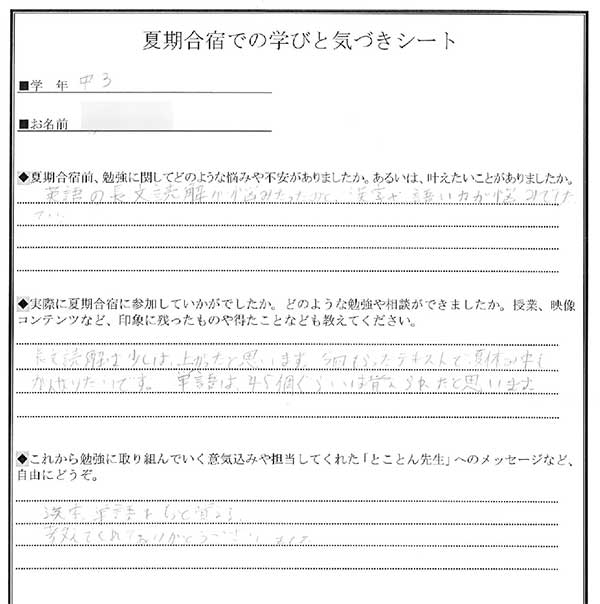 夏期合宿での学びと気づきシート
■学 年 中3
■お名前
◆夏期合宿前、勉強に関してどのような悩みや不安がありましたか。あるいは、叶えたいことがありましたか。
英語の長文読解が 漢字や語い力が悩みでした
◆実際に夏期合宿に参加していかがでしたか。どのような勉強や相談ができましたか。授業、映像
コンテンツなど、印象に残ったものや得たことなども教えてください。
長文読解は少しは上がったと思います。 テキストで夏休み中も
がんばりたいです。 単語は45個ぐらいは覚えられたと思います
◆これから勉強に取り組んでいく意気込みや担当してくれた「とことん先生」へのメッセージなど、
自由にどうぞ。
漢字、単語をもっと覚える。
教えてくれてありがとうございました